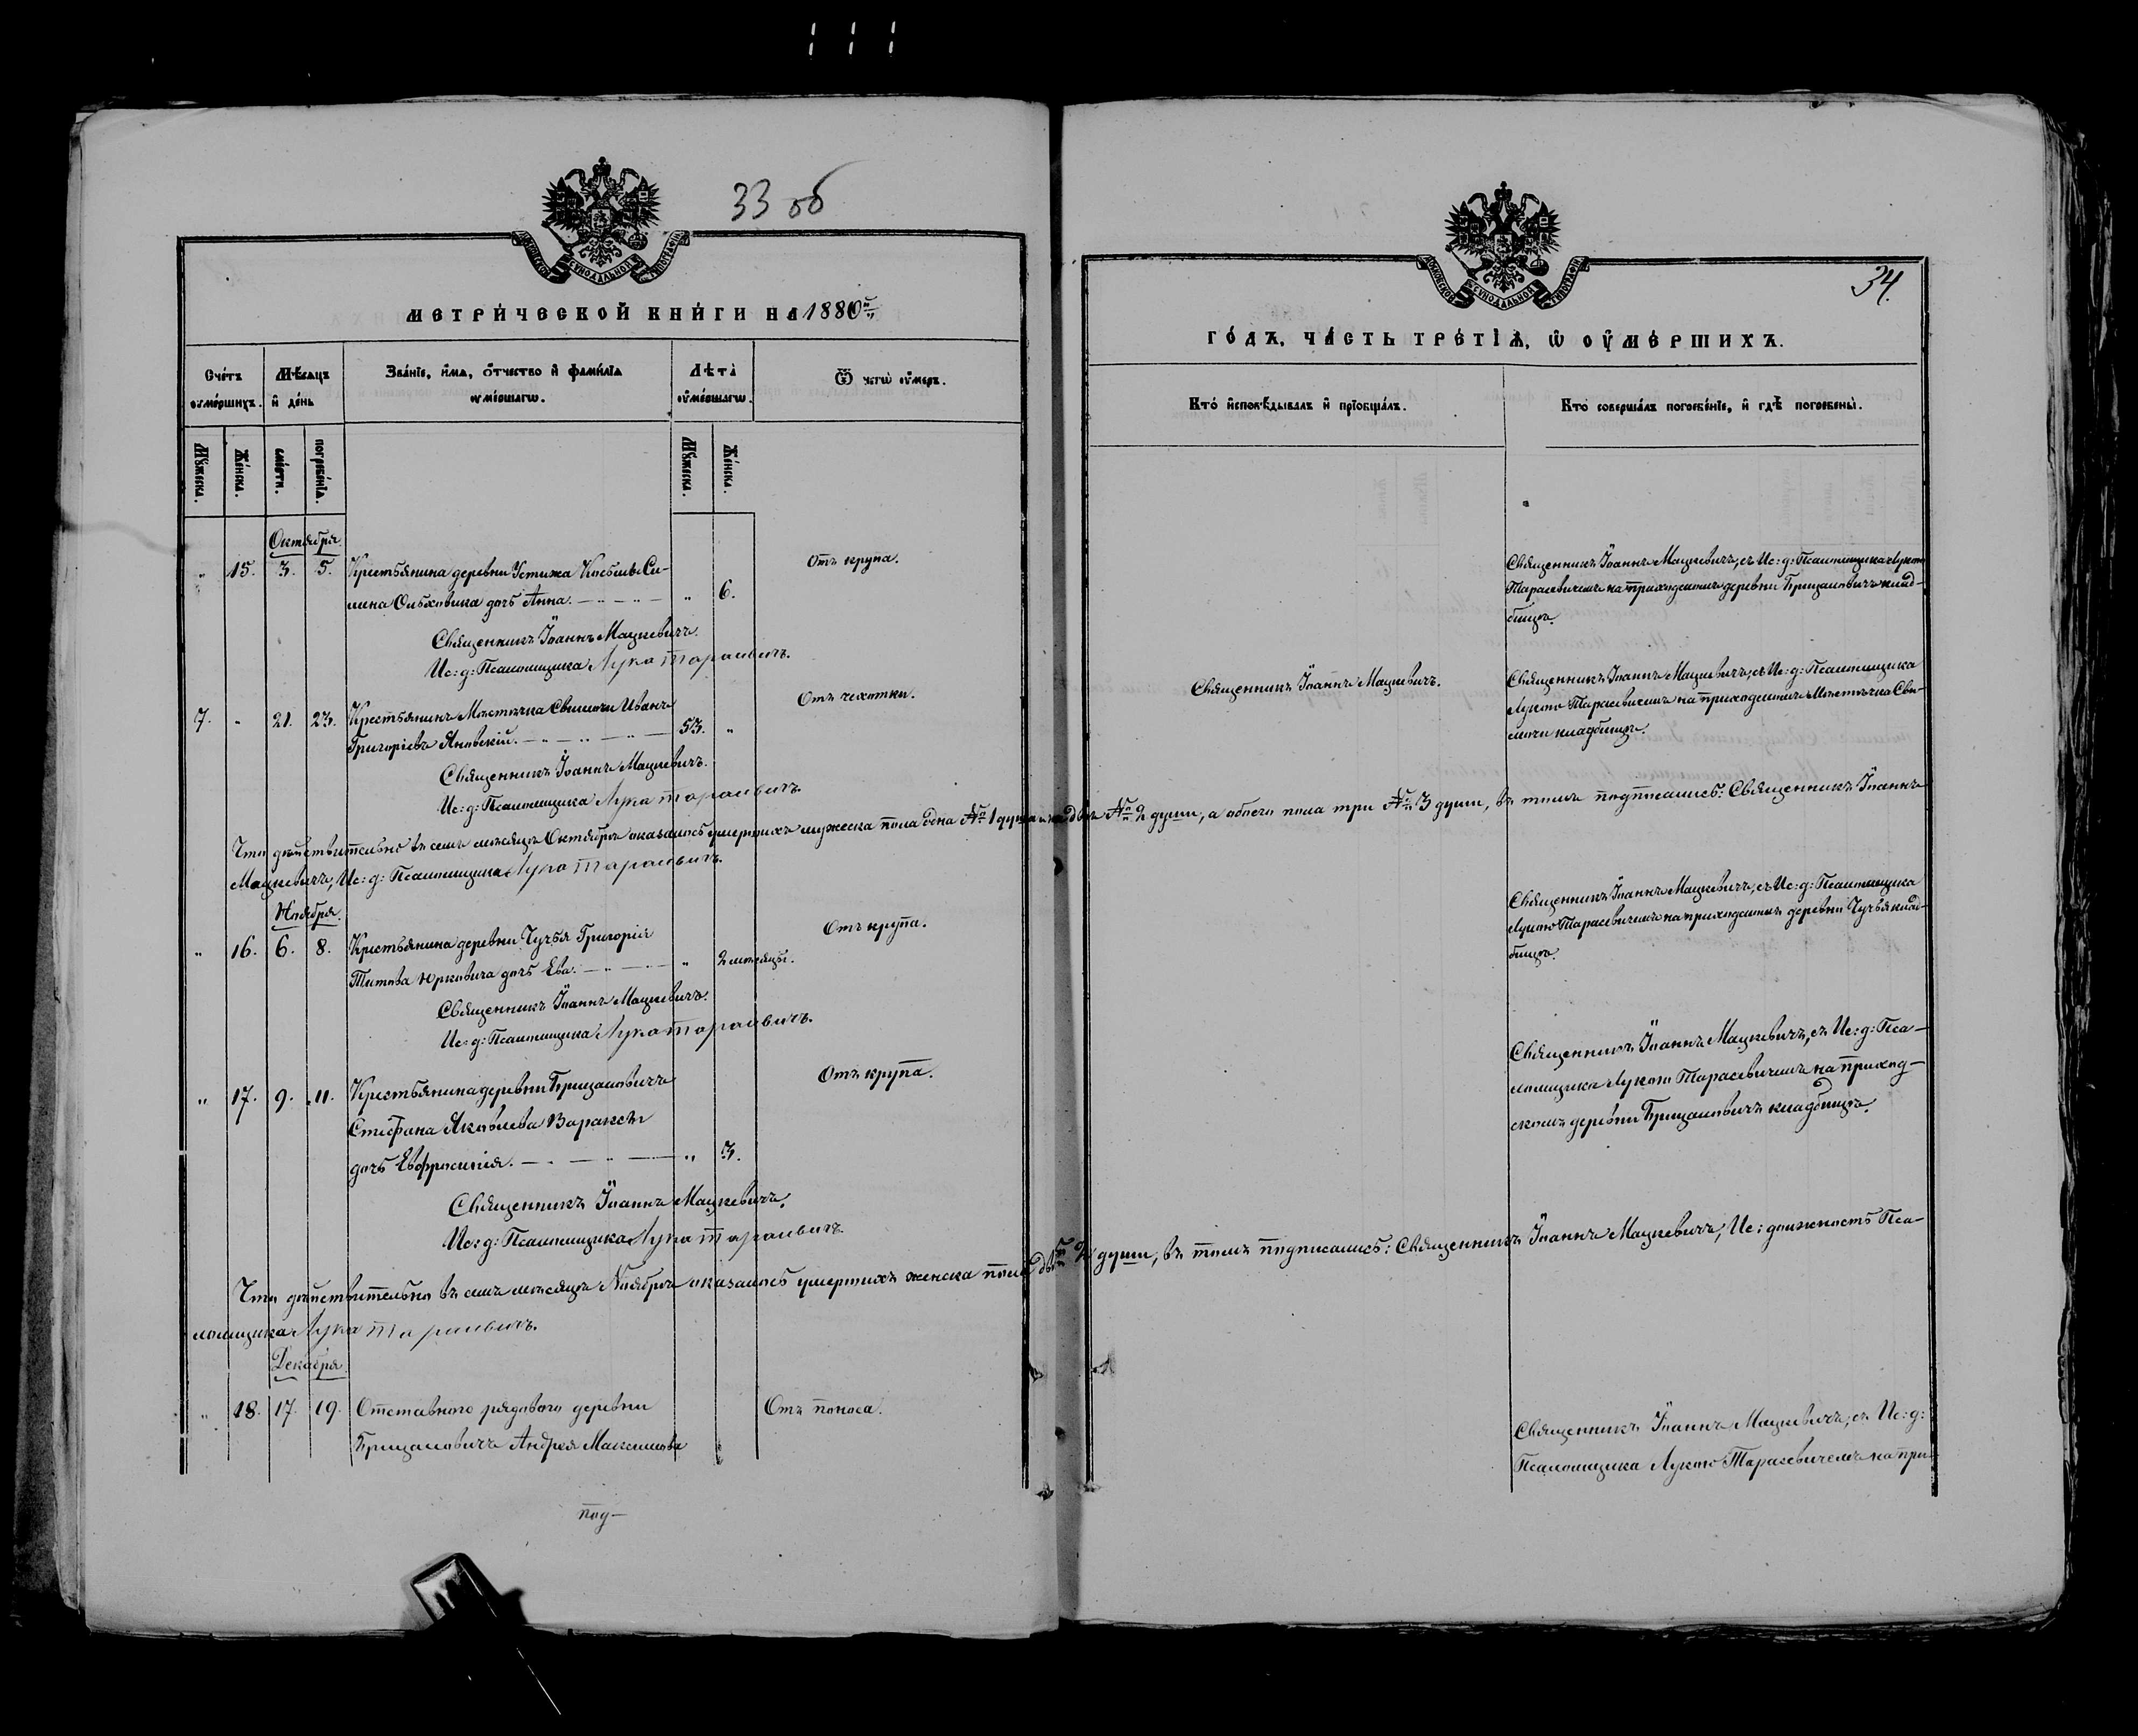 33 об
МОСКОВСКОЙ СѴНОДАЛЬНОЙ ТИПОГРАФІИ
МЕТРИ́ЧЕСКОЙ КНИ́ГИ НА 1880й
Сче́тъ ѹме́ршихъ.
Мѣ́сѧцъ и де́нь
Зва́нїе, и́мѧ, ѻ́тчество и фами́лїѧ ѹме́ршагѡ.
Лѣта̀ ѹме́ршагѡ.
Ѿ чегѡ̀ ѹ́меръ.
Мꙋ́жеска.
Же́нска.
сме́рти.
погребе́нїѧ.
Мꙋ́жеска.
Же́нска.
Октября.
" 15. 3. 5. Крестьянина деревни Устижа
дочь Анна. " 6.
Отъ крупа.
Священникъ Іоаннъ Мацкевичъ.
Ис: д: Псаломщика Лука Тарасевичъ.
7. " 21. 23. Крестьянинъ Мѣстечка Свислочи Иванъ
Григорьевъ Яновскій. 53. "
Отъ чахотки.
Священникъ Іоаннъ Мацкевичъ.
Ис: д: Псаломщика Лука Тарасевичъ.
Что дѣйствительно въ семъ мѣсяцѣ Октябрѣ оказалось умершихъ мужеска пола одна № 1 душа двѣ № 2 души, а обоего пола три № 3 души, въ томъ подписались: Священникъ Іоаннъ
Мацкевичъ, Ис: д: Псаломщика Лука Тарасевичъ.
Ноября.
" 16. 6. 8. Крестьянина деревни Чучья Григорія
Титова Юрковича дочь Ева. " 2 мѣсяцы.
Отъ крупа.
Священникъ Іоаннъ Мацкевичъ.
Ис: д: Псаломщика Лука Тарасевичъ.
" 17. 9. 11. Крестьянина деревни Брицаловичъ
Стефана Яковлева Вараксы
дочь Евфросинія. " 3.
Отъ крупа.
Священникъ Іоаннъ Мацкевичъ.
Ис: д: Псаломщика Лука Тарасевичъ.
Что дѣйствительно въ семъ мѣсяцѣ Ноябрѣ оказалось умершихъ женска пола двѣ № 2 души, въ томъ подписались: Священникъ Іоаннъ Мацкевичъ, Ис: должность Пса-
ломщика Лука Тарасевичъ.
Декабря.
" 18. 17. 19. Отставного рядового деревни
Брицаловичъ Андрея Максимова
Отъ поноса.
под-
34.
МОСКОВСКОЙ СѴНОДАЛЬНОЙ ТИПОГРАФІИ
ГО́ДЪ, ЧА́СТЬ ТРЕ́ТЇѦ, Ѡ ОУМЕ́РШИХЪ.
Кто̀ и́сповѣ́дывалъ и прїобща́лъ.
Кто̀ соверша́лъ погребе́нїе, и гдѣ̀ погребены̀.
Священникъ Іоаннъ Мацкевичъ, съ Ис: д: Псаломщика Лукою
Тарасевичемъ на приходскомъ деревни Брицаловичъ клад-
бищѣ.
Священникъ Іоаннъ Мацкевичъ.
Священникъ Іоаннъ Мацкевичъ, съ Ис: д: Псаломщика
Лукою Тарасевичемъ на приходскомъ Мѣстечка Сви-
слочи кладбищѣ.
Священникъ Іоаннъ Мацкевичъ, съ Ис: д: Псаломщика
Лукою Тарасевичемъ на приходскомъ деревни Чучья клад-
бищѣ.
Священникъ Іоаннъ Мацкевичъ, съ Ис: д: Пса-
ломщика Лукою Тарасевичемъ на приход-
скомъ деревни Брицаловичъ кладбищѣ.
Священникъ Іоаннъ Мацкевичъ, съ Ис: д:
Псаломщика Лукою Тарасевичемъ на при-